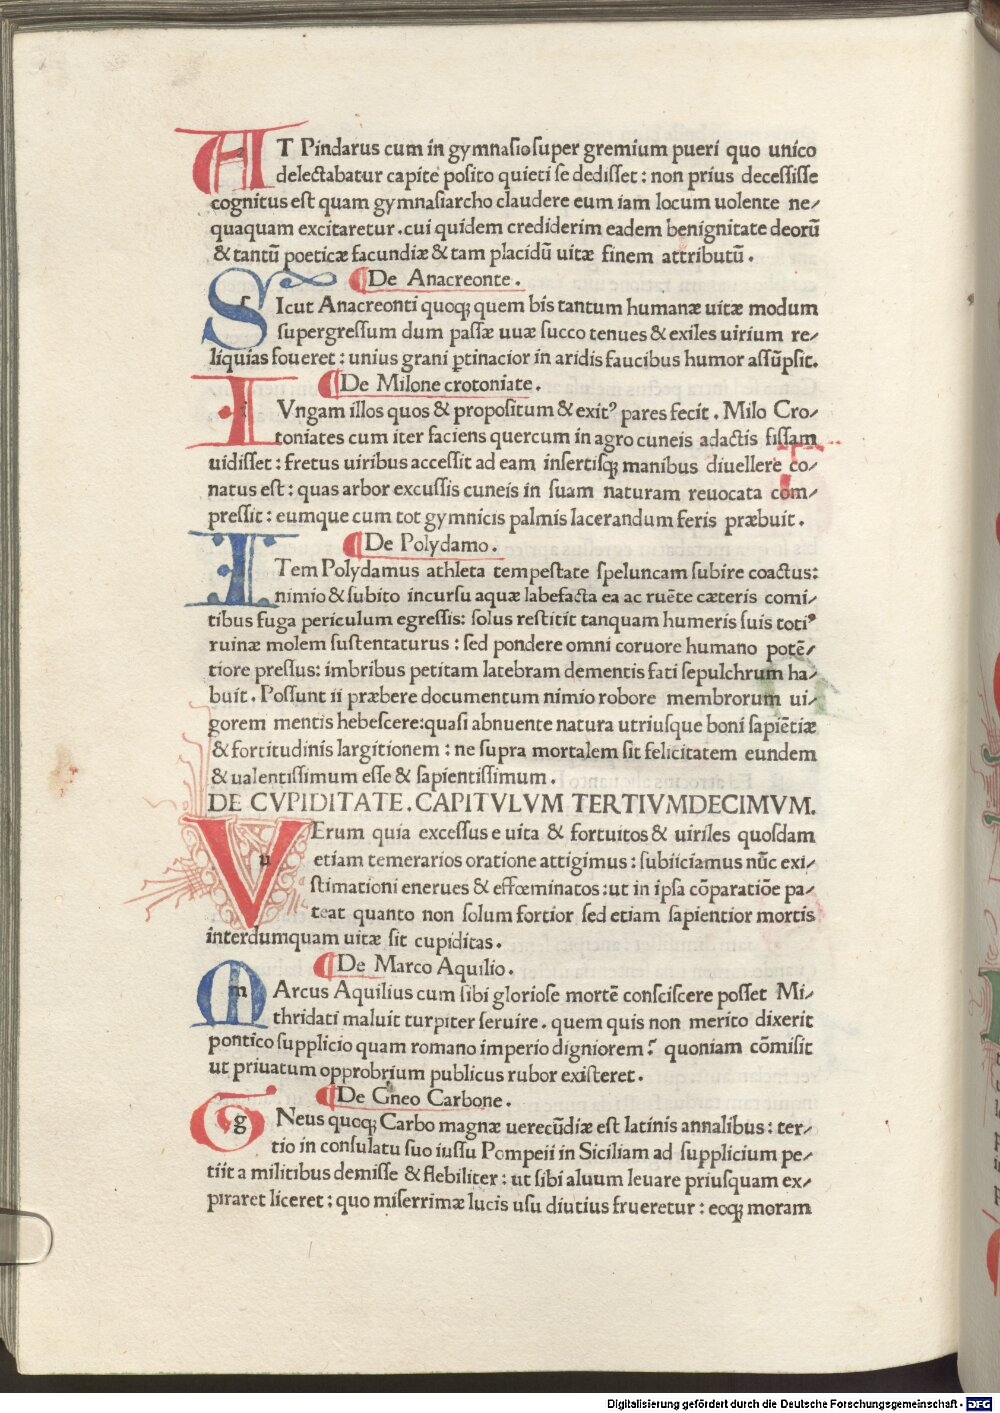 AT Pindarus cum in gymnasio super gremium pueri quo unico
delectabatur capite posito quieti se dedisset: non prius decessisse
cognitus est quam gymnasiarcho claudere eum iam locum uolente ne/
quaquam excitaretur. cui quidem crediderim eadem benignitate deorũ
& tantũ poeticæ facundiæ & tam placidũ uitæ finem attributũ.
¶ De Anacreonte.
SIcut Anacreonti quoqꝫ quem bis tantum humanæ uitæ modum
supergressum dum passæ uuæ succo tenues & exiles uirium re/
liquias foueret: unius grani ꝑtinacior in aridis faucibus humor assũpsit.
¶ De Milone crotoniate.
IVngam illos quos & propositum & exitꝰ pares fecit. Milo Cro/
toniates cum iter faciens quercum in agro cuneis adactis fissam
uidisset: fretus uiribus accessit ad eam insertisqꝫ manibus diuellere co/
natus est: quas arbor excussis cuneis in suam naturam reuocata com/
pressit: eumque cum tot gymnicis palmis lacerandum feris præbuit.
¶ De Polydamo.
ITem Polydamus athleta tempestate speluncam subire coactus:
nimio & subito incursu aquæ labefacta ea ac ruẽte cæteris comi/
tibus fuga periculum egressis: solus restitit tanquam humeris suis totiꝰ
ruinæ molem sustentaturus: sed pondere omni coruore humano potẽ/
tiore pressus: imbribus petitam latebram dementis fati sepulchrum ha/
buit. Possunt ii præbere documentum nimio robore membrorum ui/
gorem mentis hebescere: quasi abnuente natura utriusque boni sapiẽtiæ
& fortitudinis largitionem: ne supra mortalem sit felicitatem eundem
& ualentissimum esse & sapientissimum.
DE CVPIDITATE. CAPITVLVM TERTIVMDECIMVM.
VErum quia excessus e uita & fortuitos & uiriles quosdam
etiam temerarios oratione attigimus: subiiciamus nũc exi/
stimationi enerues & effœminatos: ut in ipsa cõparatiõe pa/
teat quanto non solum fortior sed etiam sapientior mortis
interdumquam uitæ sit cupiditas.
¶ De Marco Aquilio.
MArcus Aquilius cum sibi gloriose mortẽ consciscere posset Mi/
thridati maluit turpiter seruire. quem quis non merito dixerit
pontico supplicio quam romano imperio digniorem? quoniam cõmisit
ut priuatum opprobrium publicus rubor existeret.
¶ De Gneo Carbone.
GNeus quoqꝫ Carbo magnæ uerecũdiæ est latinis annalibus: ter/
tio in consulatu suo iussu Pompeii in Siciliam ad supplicium pe/
tiit a militibus demisse & flebiliter: ut sibi aluum leuare priusquam ex/
piraret liceret: quo miserrimæ lucis usu diutius frueretur: eoqꝫ moram
Digitalisierung gefördert durch die Deutsche Forschungsgemeinschaft - DFG